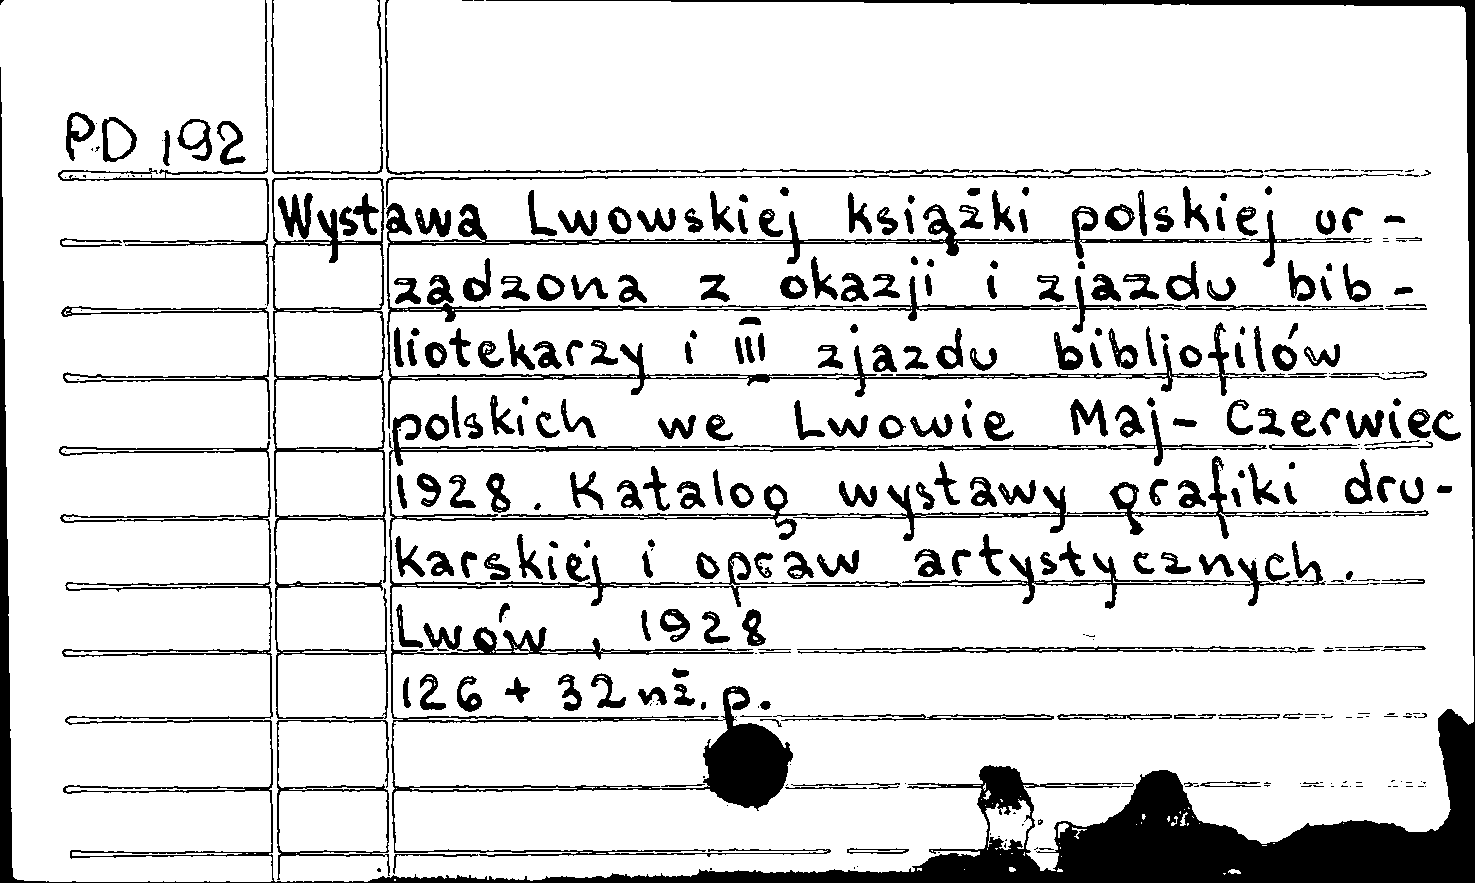 PD 192
Wystawa Lwowskiej książki polskiej ur-
ządzona z okazji i zjazdu bib-
liotekarzy i III zjazdu bibljofilów
polskich we Lwowie Maj - Czerwiec
1928. Katalog wystawy grafiki dru-
karskiej i opraw artystycznych.
Lwów, 1928
126 + 32 nż. p.